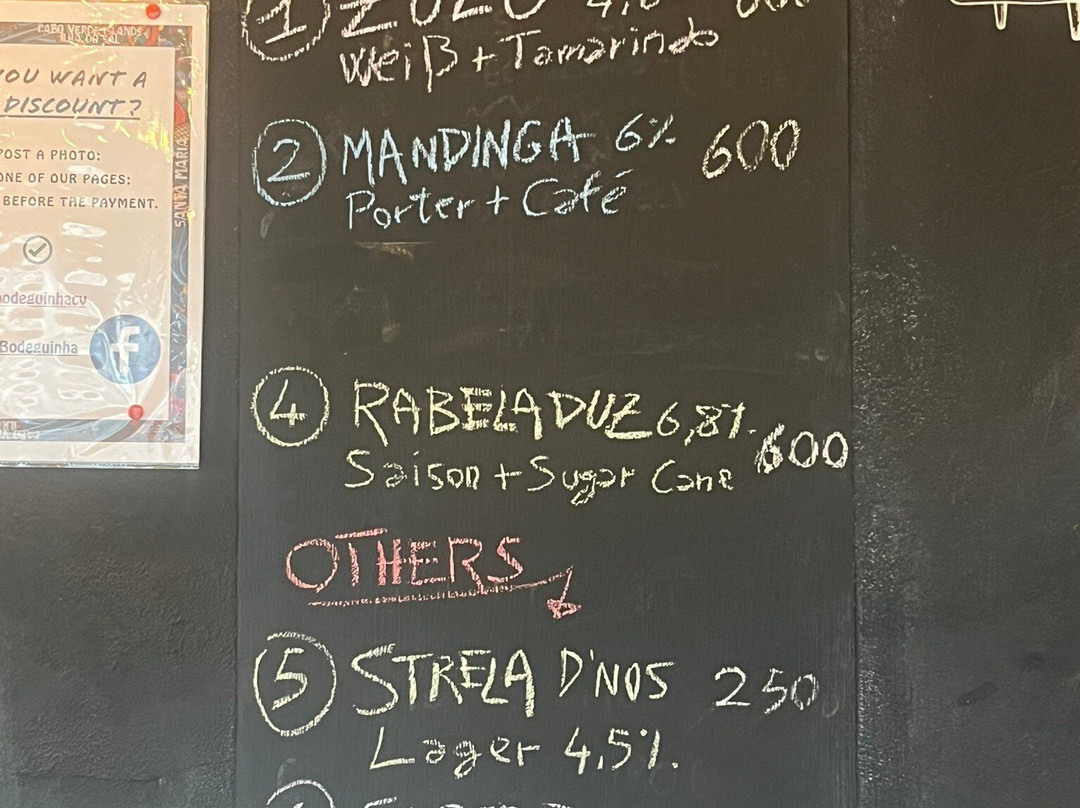 CABO VERDE ISLANDS
YOU WANT A
DISCOUNT?
POST A PHOTO:
ONE OF OUR PAGES:
BEFORE THE PAYMENT.
bodeguinhacv
Bodeguinha
f
SANTA MARIA
1 ZULU
Weiß + Tamarindo
2 MANDINGA 6% 600
Porter + Café
4 RABELADUZ 6,8% 600
Saison + Sugar Cane
OTHERS
5 STRELA D'NOS 250
Lager 4,5%.